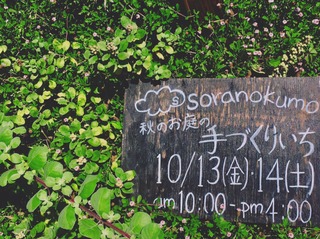 soranokumo
秋のお庭の
手づくりいち
10/13(金)・14(土)
am10:00-pm4:00